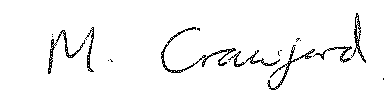 M. Crawford